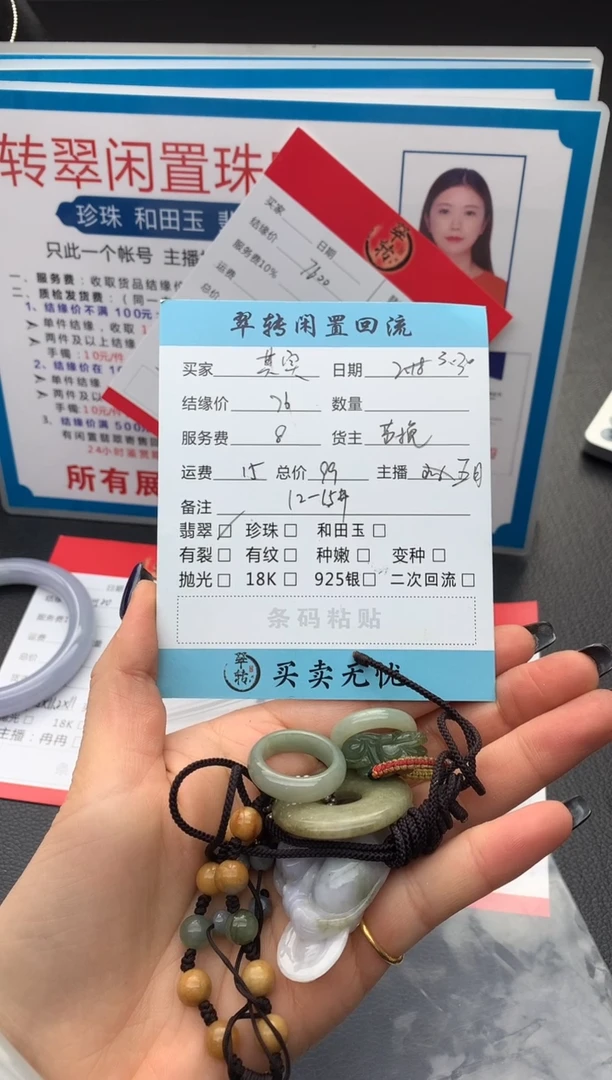 转翠闲置珠
珍珠 和田玉
只此一个帐号 主播
一、服务费：收取货品结缘价
二、质检发货费：（同一
1、结缘价不满 100元
单件结缘，收取 1
两件及以上结缘
手镯：10元/件
2、结缘价在 10
单件结缘
两件及以
手镯:10元/件
3、结缘价满 500
有闲置翡翠寄售
24小时鉴赏
所有展
买家 日期
结缘价 7600
服务费10%
运费
总价
翠转
翠转闲置回流
买家 其实 日期
结缘价 76 数量
服务费 8 货主
运费 15 总价 99 主播
备注 12-15件
翡翠□ 珍珠□ 和田玉□
有裂□ 有纹□ 种嫩□ 变种□
抛光□ 18K□ 925银□ 二次回流□
条码粘贴
翠转 买卖无忧
运费
总价
18K□
主播：冉冉